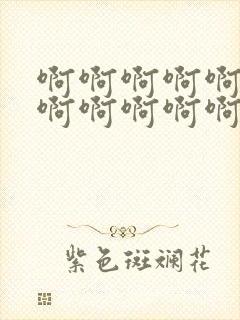 啊啊啊啊啊
啊啊啊啊啊
紫色斑斓花